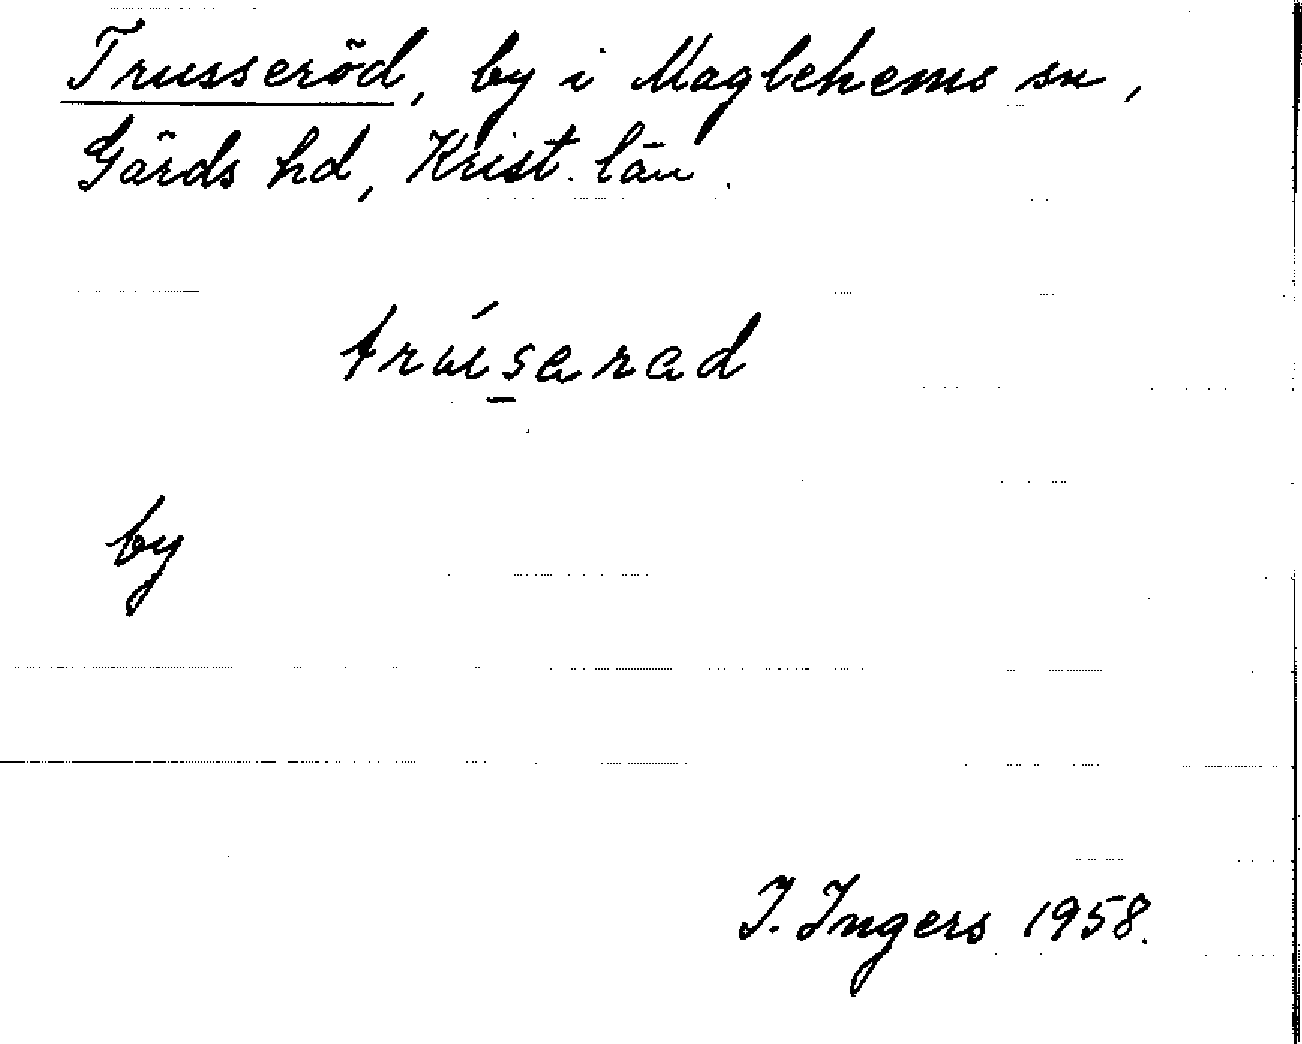 Trusseröd, by i Maglehems sn,
Gärds hd, Krist. län.
by
I. Ingers 1958.